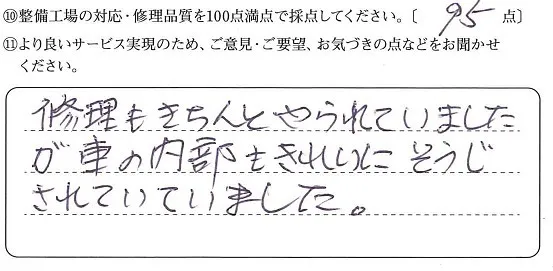 ⑩整備工場の対応・修理品質を100点満点で採点してください。〔 95 点〕
⑪より良いサービス実現のため、ご意見・ご要望、お気づきの点などをお聞かせ
ください。
修理もきちんとやられていました
が車の内部もきれいにそうじ
されていていました。